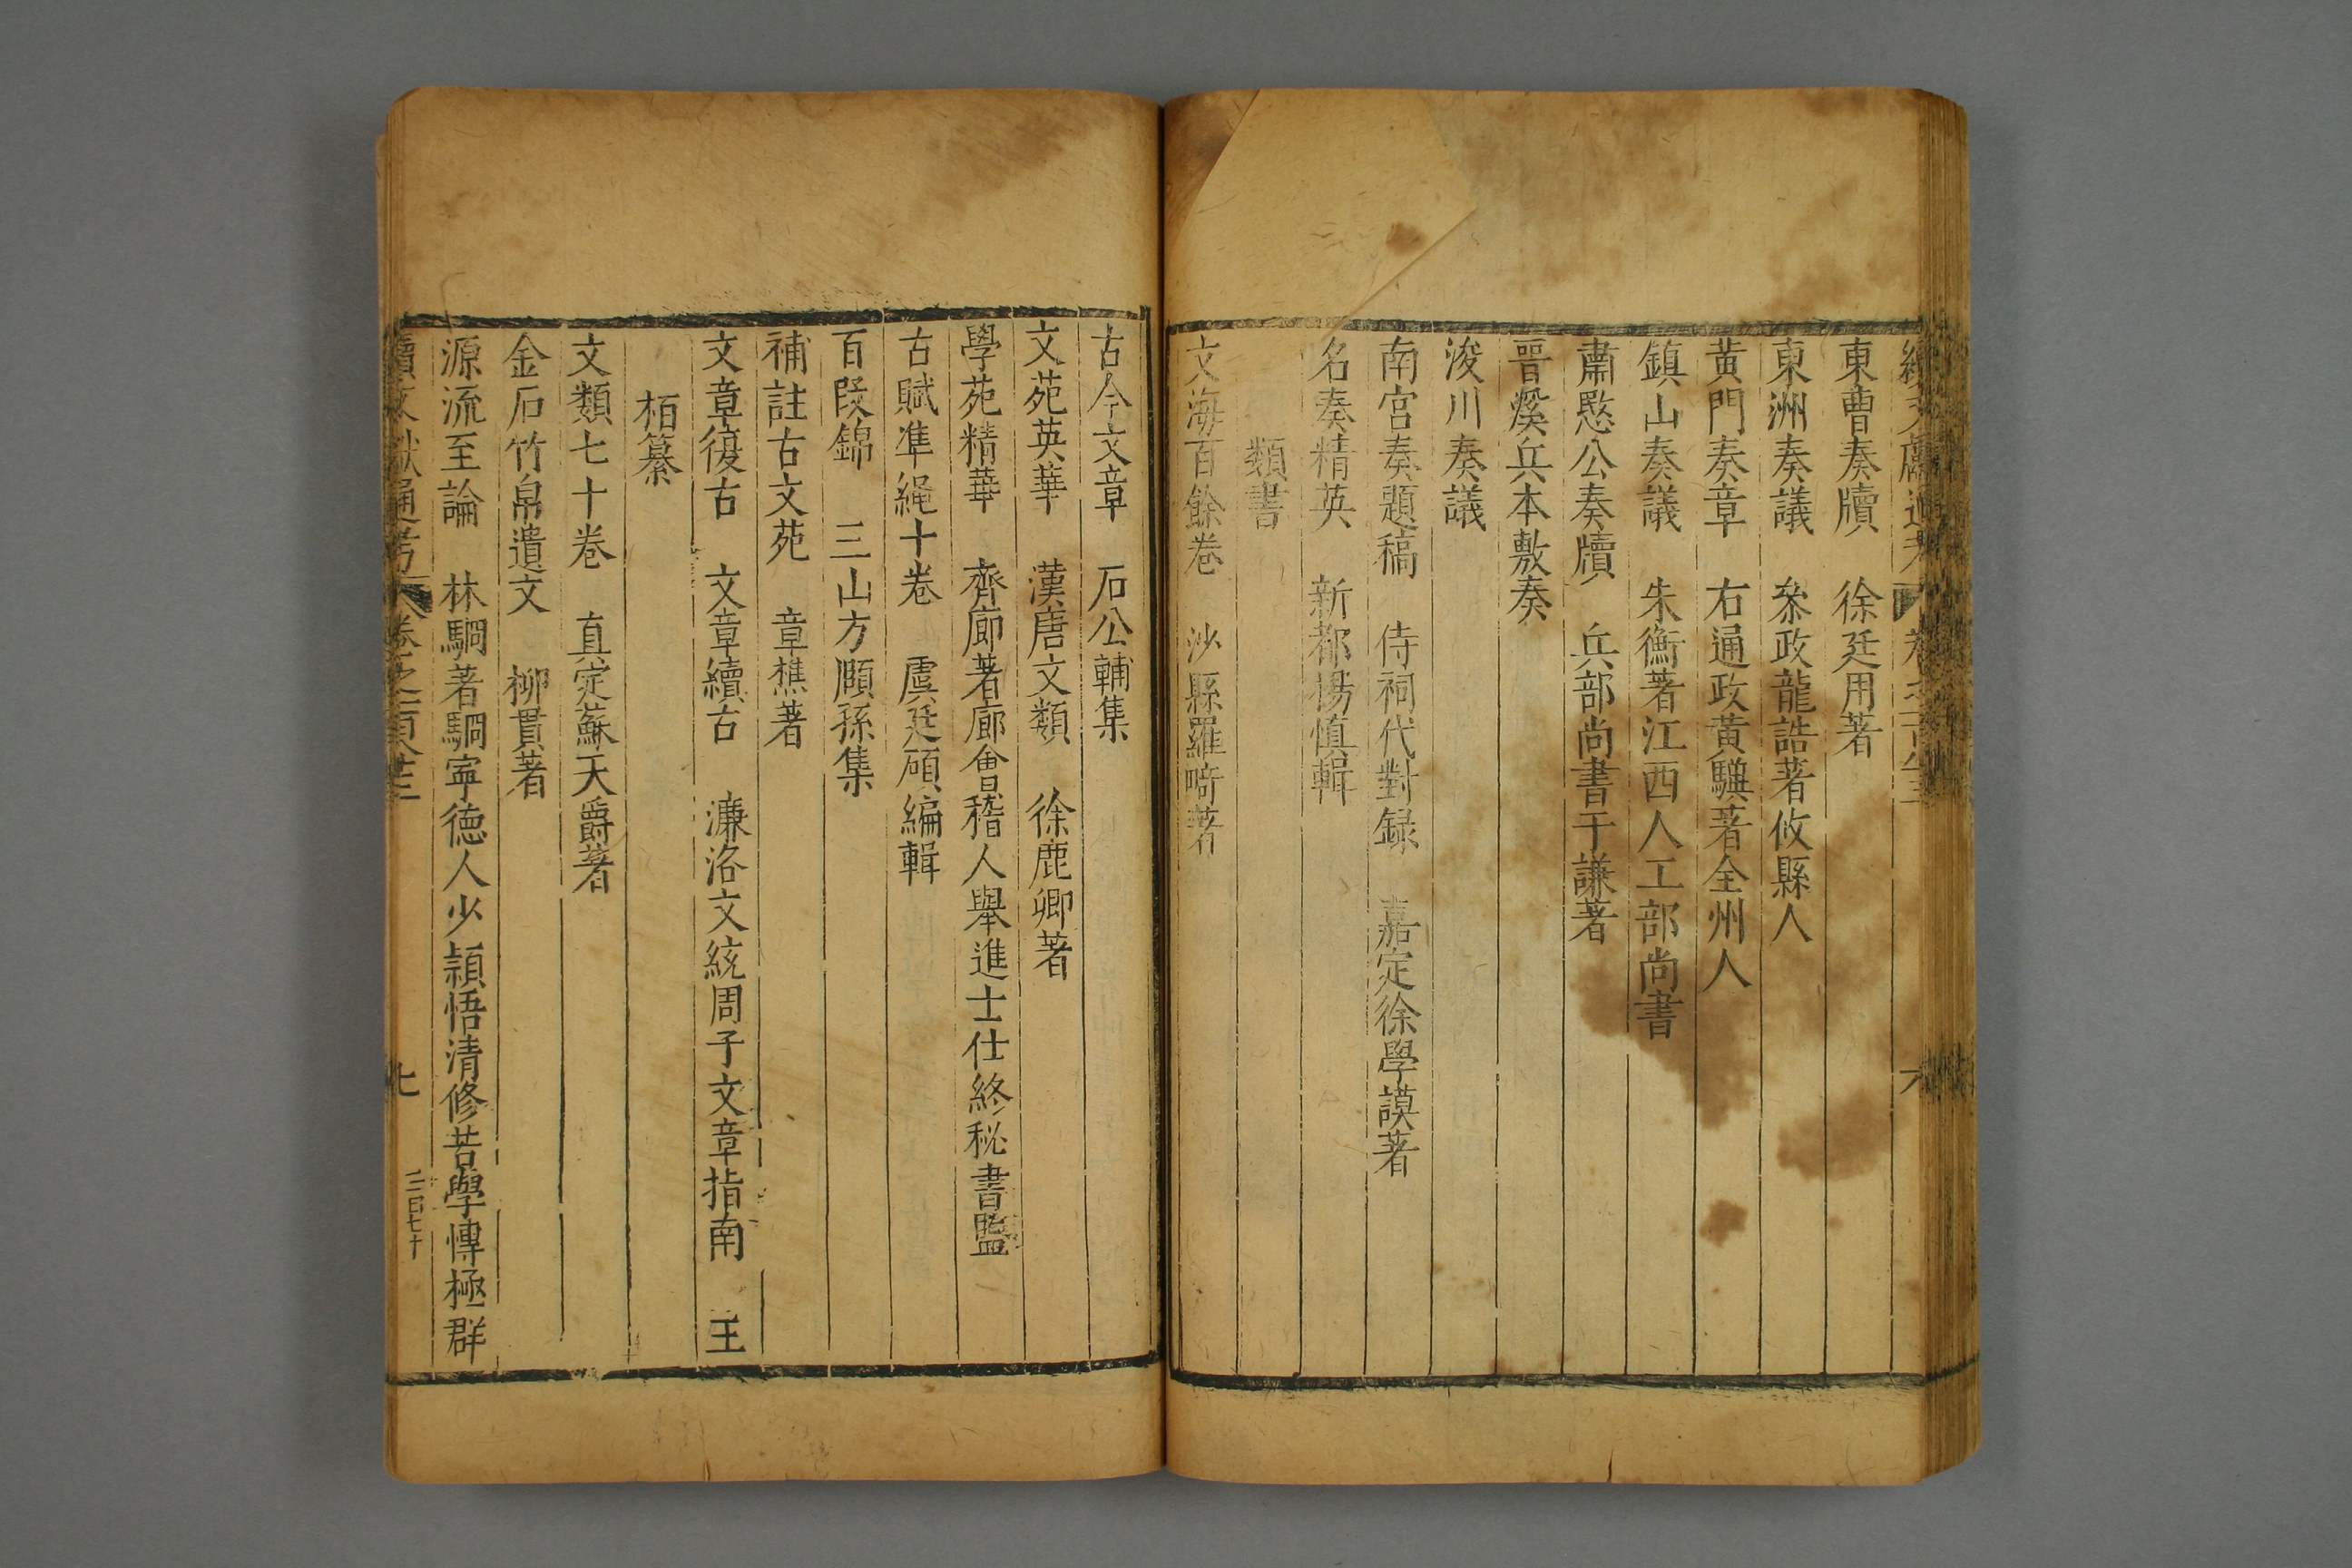 東曹奏牘　徐廷用著
東洲奏議　叅政龍誥著攸縣人
黄門奏章　右通政黄驥著全州人
鎮山奏議　朱衡著江西人工部尚書
肅愍公奏牘　兵部尚書于謙著
晉溪兵本敷奏
浚川奏議
南宫奏題稿　侍祠代對録　嘉定徐學謨著
名奏精英　新都楊慎輯
類書
文海百餘巻　沙縣羅畸著
古今文章　石公輔集
文苑英華　漢唐文類　徐鹿卿著
學苑精華　齊廊著廊會稽人舉進士仕終秘書監
古賦凖繩十巻　虞廷碩編輯
百段錦　三山方頤孫集
補註古文苑　章樵著
文章復古　文章續古　濂洛文統周子文章指南　王
栢纂
文類七十巻　真定蘇天爵著
金石竹帛遺文　柳貫著
源流至論　林駧著駧寧德人少頴悟清修苦學博極群
七